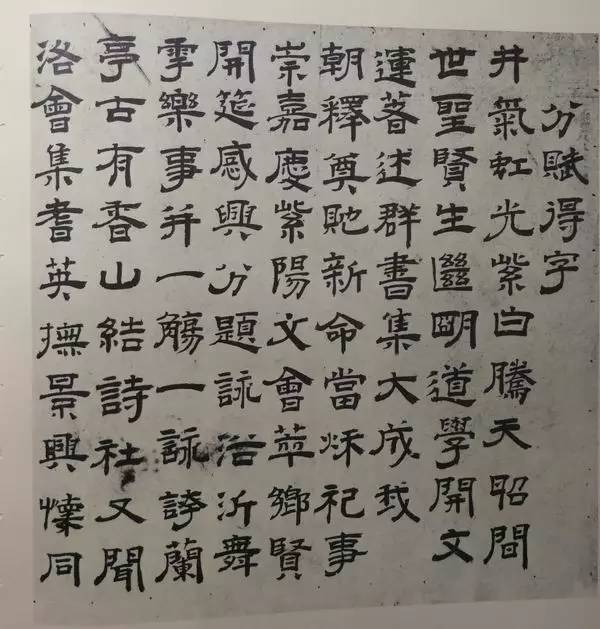 分賦得字
井氣虹光紫白騰天昭間
世聖賢生繼明道學開文
運著述群書集大成我
朝釋奠貤新命當秋祀事
崇嘉慶紫陽文會萃鄉賢
開筵感興分題詠浴沂舞
雩樂事并一觴一詠誇蘭
亭古有香山結詩社又聞
洛會集耆英撫景興懷同